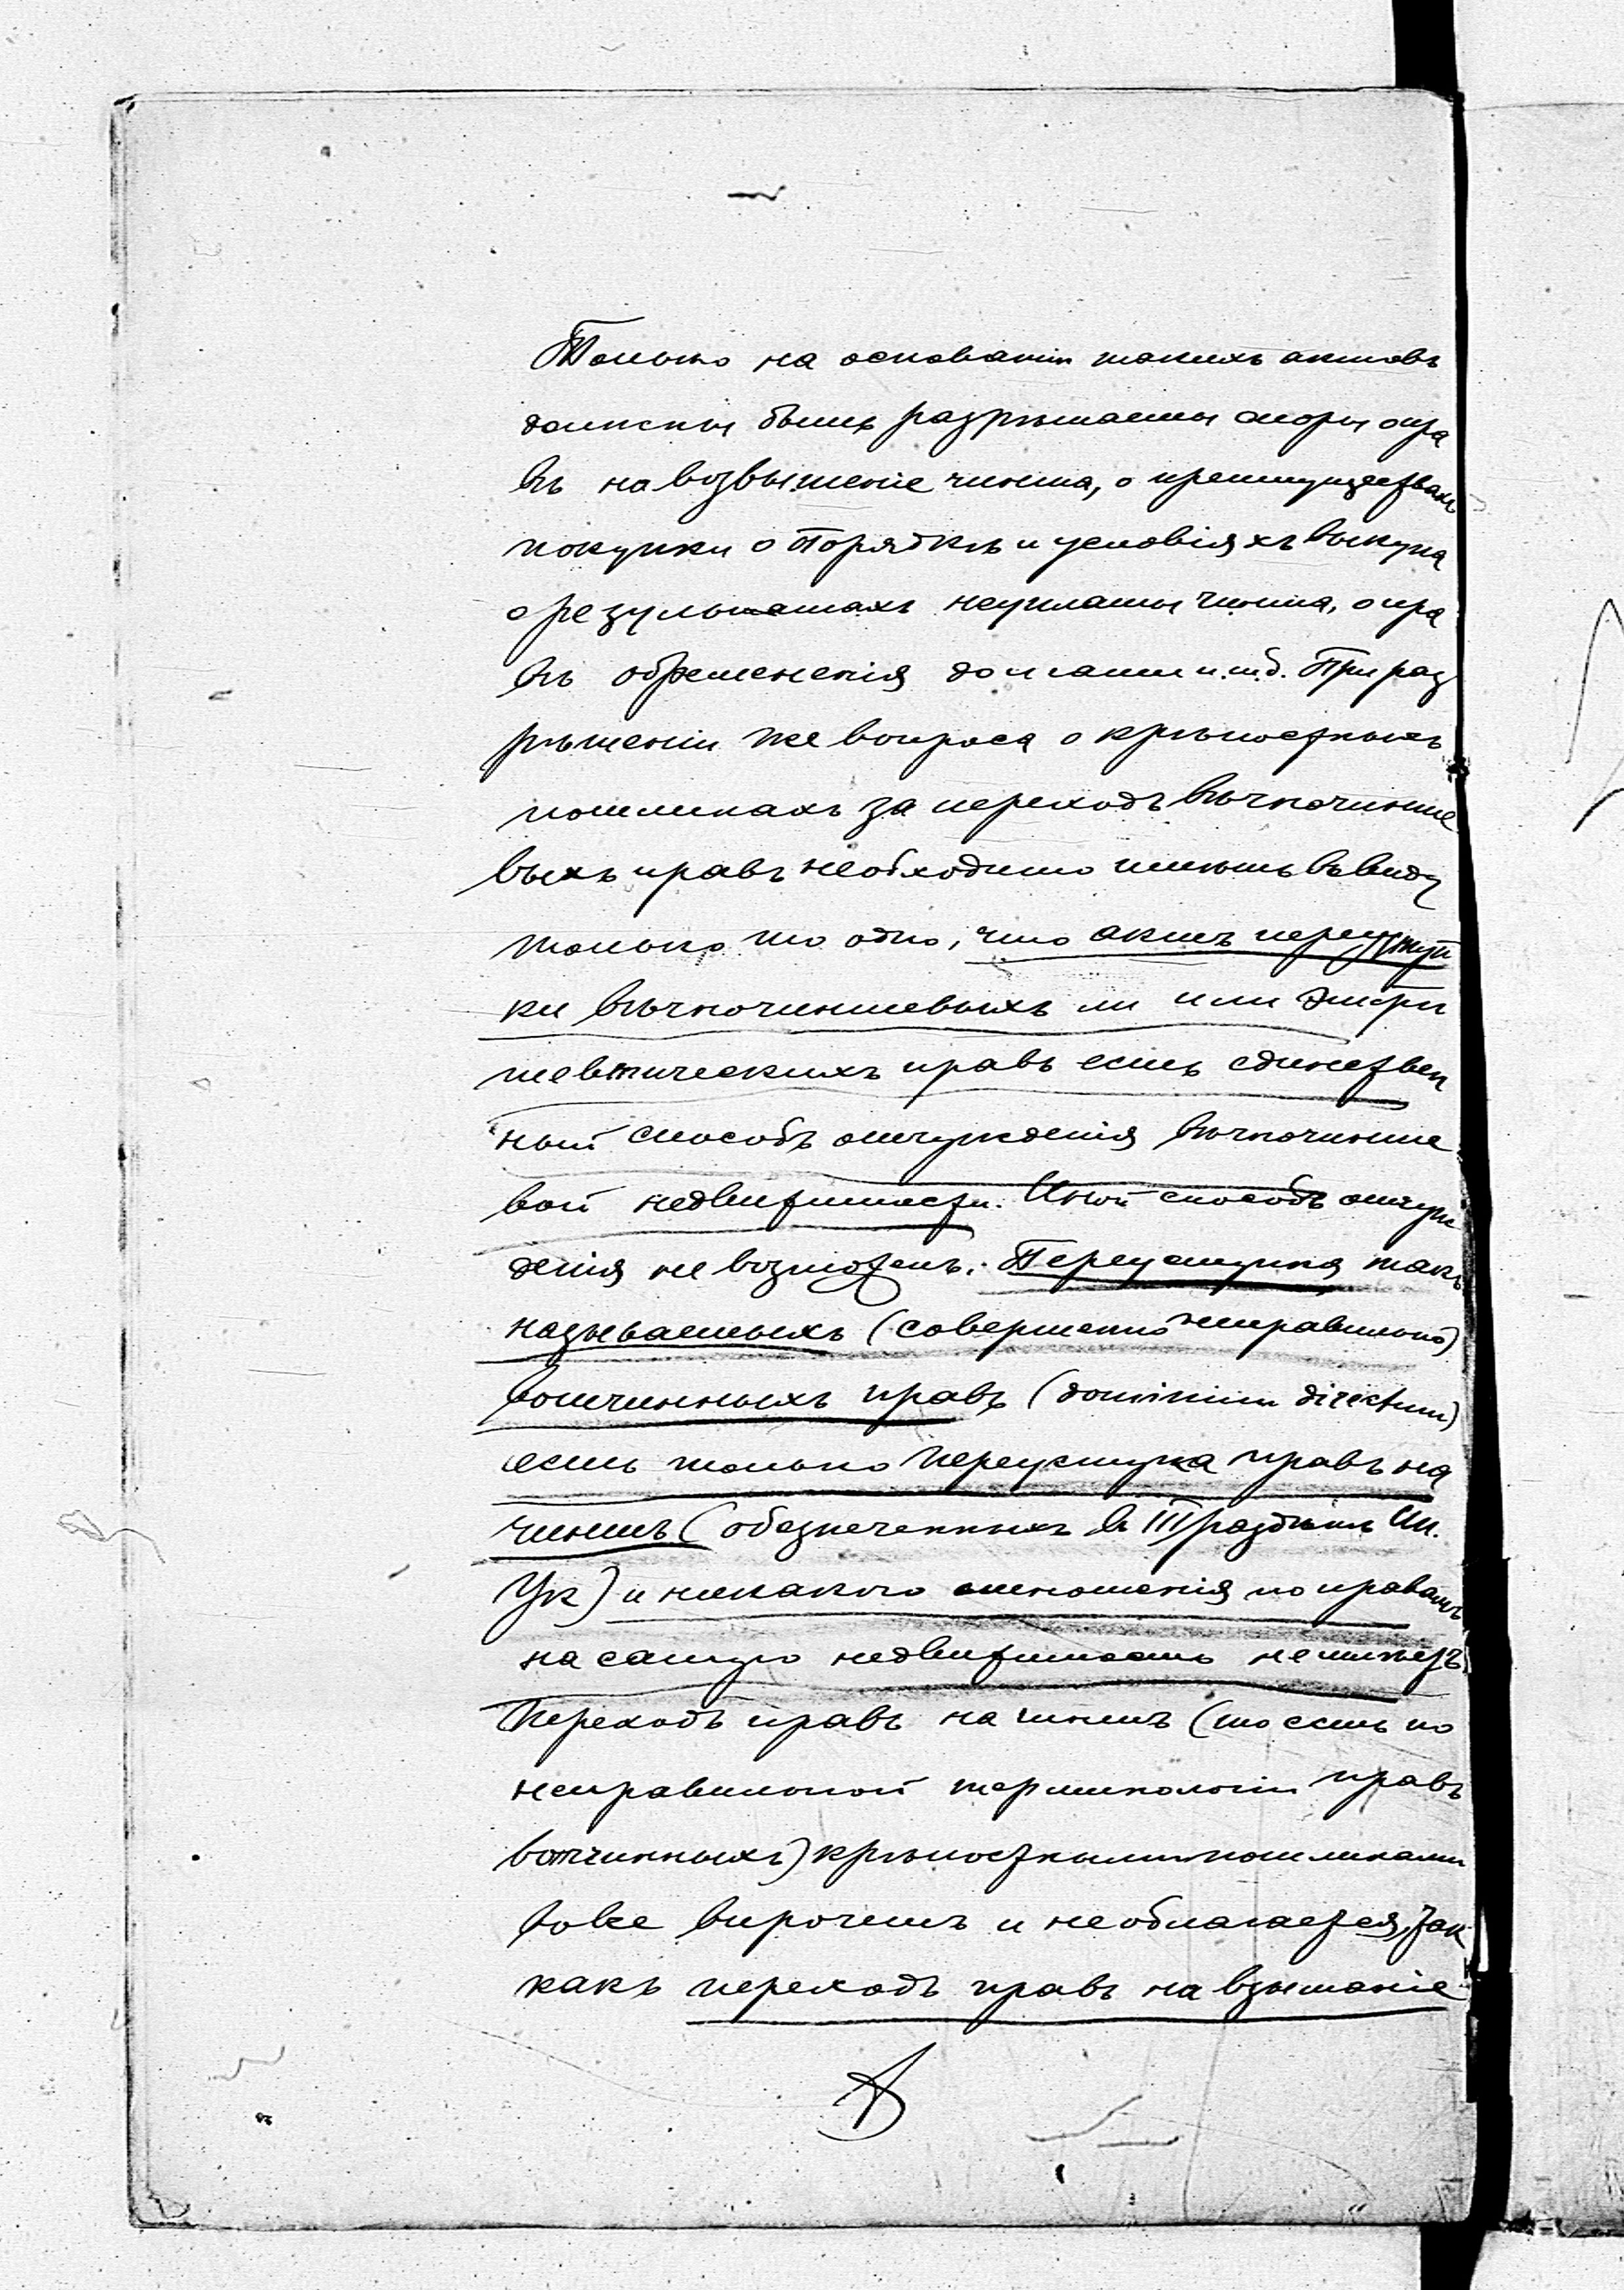 Только на основанiи такихъ актовъ
должны быть разрѣшаемы споры о пра
вѣ на возвышенiе чинша, о преимуществахъ
покупки о порядкѣ и условiяхъ выкупа
о результатахъ неуплаты чинша, о пра
вѣ обремененiя долгами и.т.д. При раз
рѣшенiи же вопроса о крѣпостныхъ
пошлинахъ за переходъ вѣчночинше
выхъ правъ необходимо имѣть въ виду
только то одно, что актъ переуступ
ки вѣчночиншевыхъ ли или эмфи
тевтическихъ правъ есть единствен
ный способъ отчужденiя вѣчночинше
вой недвижимости. Иной способъ отчуж
денiя не возможенъ. Переуступка такъ
называемыхъ (совершенно неправильно)
вотчинныхъ правъ (dominium directum)
есть только переуступка правъ на
чиншъ (обезпеченныхъ въ III раздѣлѣ Ип.
Ук) и никакого отношенiя по правамъ
на самую недвижимость не имѣетъ
Переходъ правъ на чиншъ (то есть по
неправильной терминологiи правъ
вотчинныхъ) крѣпостными пошлинами
вовсе впрочемъ и не облагается, так
какъ переходъ правъ на взиманiе